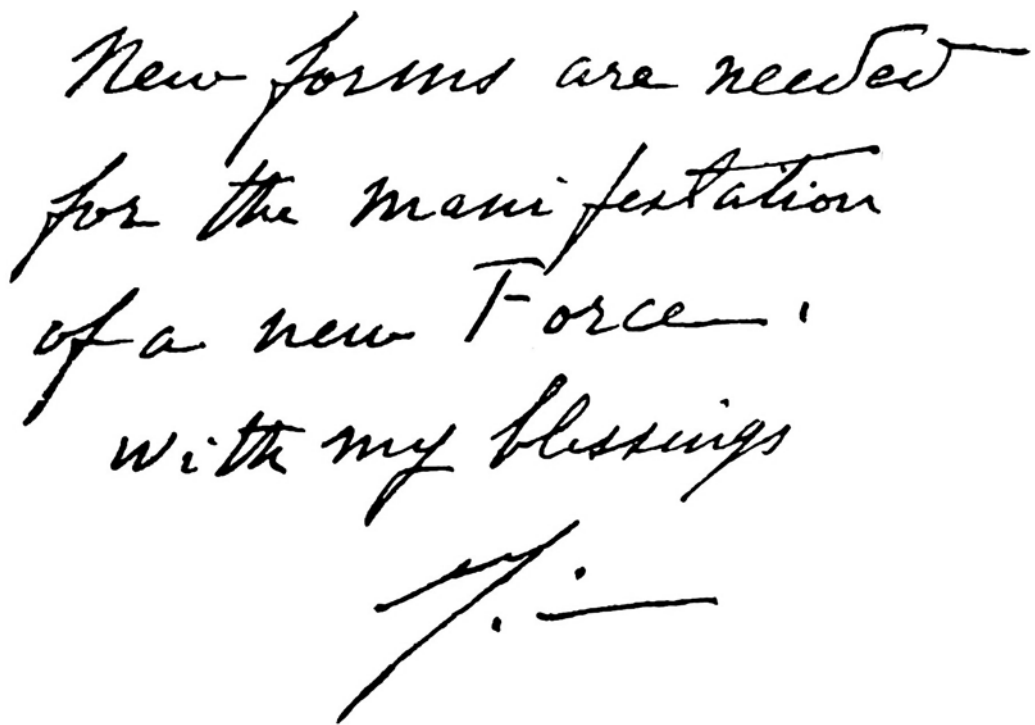 New forms are needed
for the manifestation
of a new Force.
with my blessings